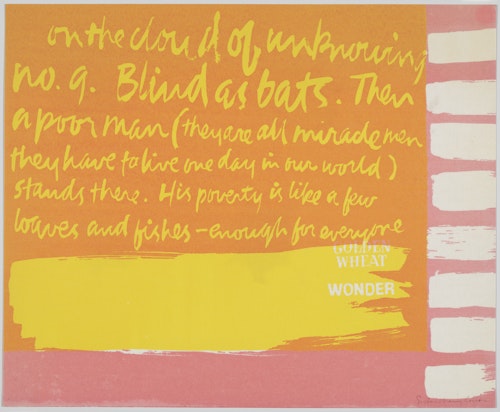 on the cloud of unknowing
no. 9. Blind as bats. Then
a poor man (they are all miracle men
they have to live one day in our world)
stands there. His poverty is like a few
loaves and fishes – enough for everyone
GOLDEN
WHEAT
WONDER